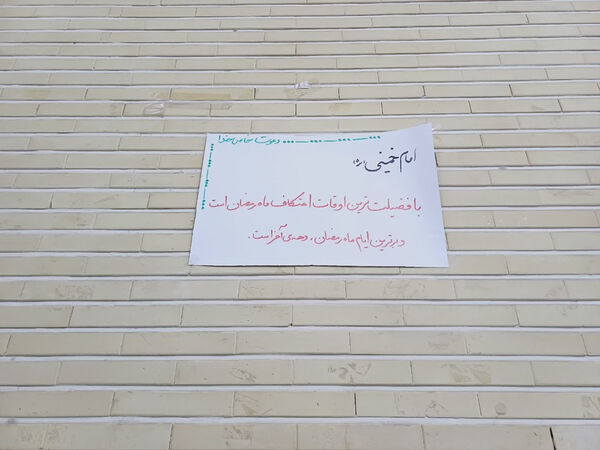 دعوت خاص خدا
امام خمینی (ره)
با فضیلت ترین اوقات اعتکاف ماه رمضان است
و برترین ایام ماه رمضان، دهه‌ی آخر است.